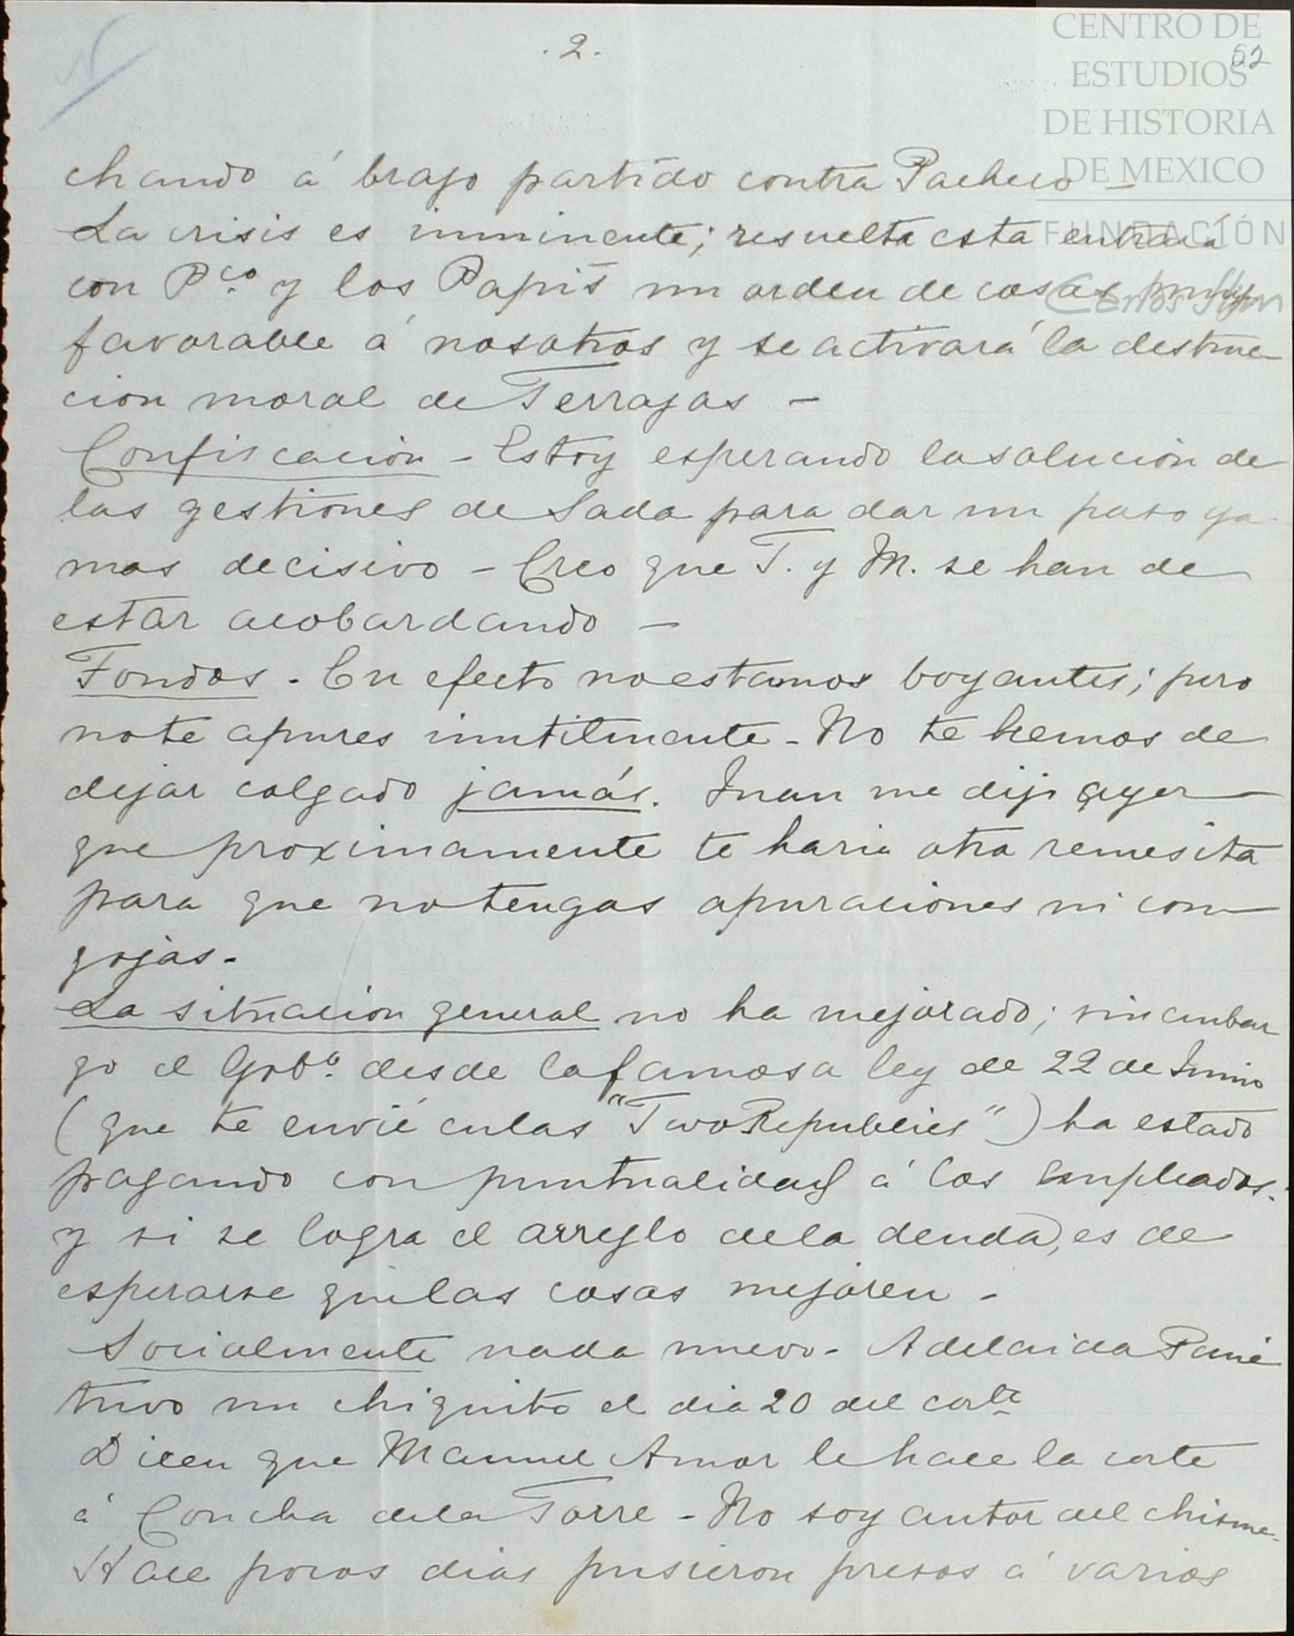 . 2 .
52
CENTRO DE
ESTUDIOS
DE HISTORIA
DE MEXICO
FUNDACIÓN
Carlos Slim
chando á brazo partido contra Pacheco -
La crisis es inminente; resuelta esta entrará
con P.co y los Papis un orden de cosas muy
favorable á nosotros y se activará la destruc-
cion moral de Terrazas -
Confiscacion - Estoy esperando la solucion de
las gestiones de Sada para dar un paso ya
mas decisivo - Creo que T. y M. se han de
estar acobardando -
Fondos - En efecto no estamos boyantes; pero
no te apures inutilmente - No te hemos de
dejar colgado jamás. Juan me dijo ayer
que proximamente te haria otra remesita
para que no tengas apuraciones ni con-
gojas -
La situacion general no ha mejorado; sin embar
go el Gobº. desde la famosa ley de 22 de Junio
(que te envié en las "Two Republics") ha estado
pagando con puntualidad á los empleados.
y si se logra el arreglo de la deuda, es de
esperarse que las cosas mejoren -
Socialmente nada nuevo - Adelaida
tuvo un chiquito el dia 20 del corte
Dicen que Manuel Amor le hace la corte
á Concha de la Torre - No soy autor del chisme -
Hace pocos dias pusieron presos á varios